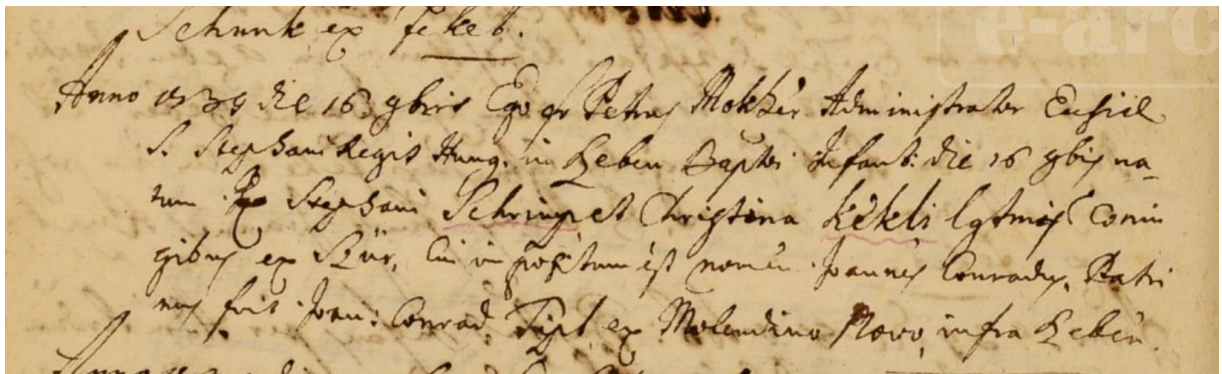 Schunk ex feket.
e-arc
Anno 1739 die 16 9bris Ego fr Petrus Mokher Administrator Ecclsiae
S. Stephani Regis Hung. in Zeben Baptsi Infant: die 16 9bris na-
tum Stephani Schrimp et Christina Kékli lgtmis Coniu
gibus ex Szűr, Cui impositum est nomen Joannes Conradus, Patri
nus fuit Joan: Conrad ex Molendino Novo infra Zeben.